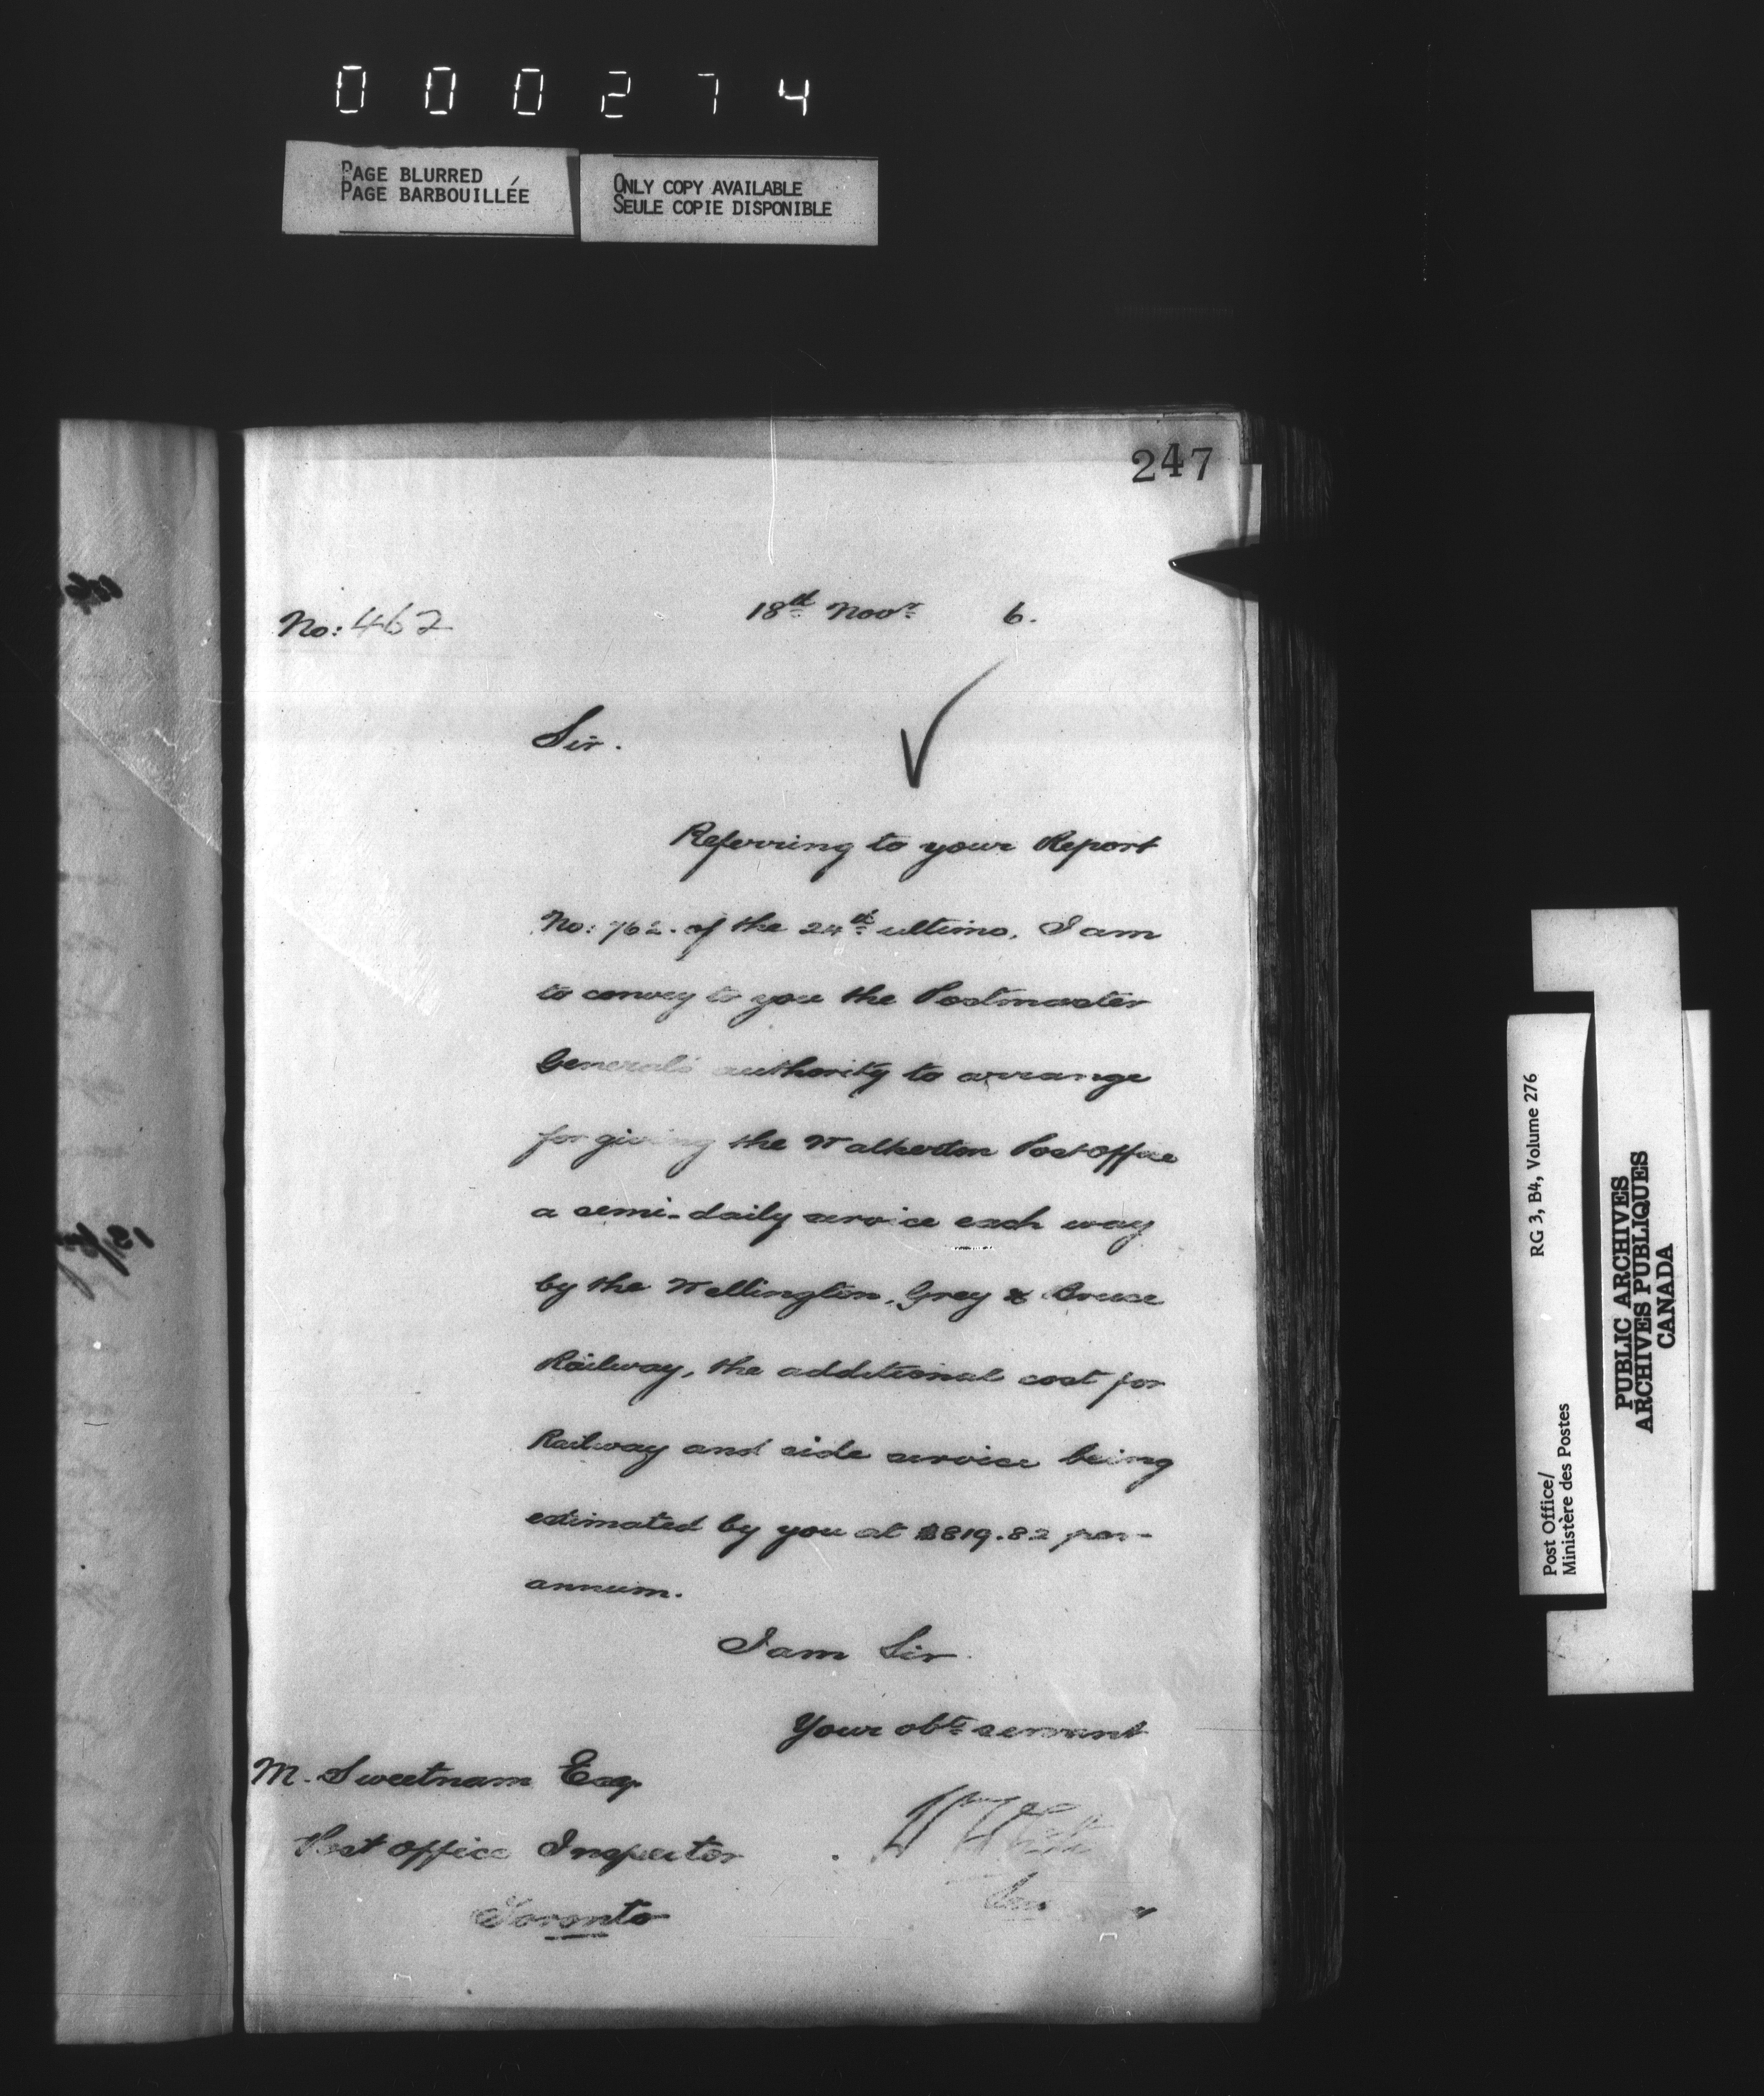 000274
PAGE BLURRED
PAGE BARBOUILLÉE
ONLY COPY AVAILABLE
SEULE COPIE DISPONIBLE
247
No: 462
18th Novr 6.
Sir.
Referring to your Report
No: 762. of the 24th ultimo, I am
to convey to you the Postmaster
General's authority to arrange
for giving the Walkerton Post Office
a semi-daily service each way
by the Wellington, Grey & Bruce
Railway, the additional cost for
Railway and side service being
estimated by you at $819.82 per-
annum.
I am Sir.
Your obt servant
M. Sweetnam Esq.
Post Office Inspector
Toronto
Post Office/
Ministère des Postes
RG 3, B4, Volume 276
PUBLIC ARCHIVES
ARCHIVES PUBLIQUES
CANADA